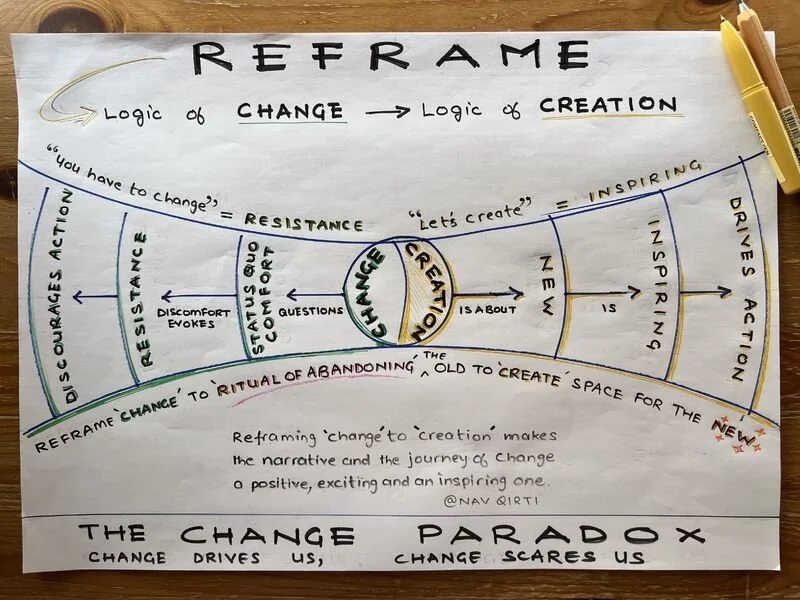 REFRAME
Logic of CHANGE → Logic of CREATION
"You have to change" = RESISTANCE
"Let's create" = INSPIRING
DISCOURAGES ACTION
RESISTANCE
DISCOMFORT
EVOKES
STATUS QUO
COMFORT
QUESTIONS
CHANGE
CREATION
IS ABOUT
NEW
IS
INSPIRING
DRIVES ACTION
REFRAME 'CHANGE' TO 'RITUAL OF ABANDONING' THE OLD TO 'CREATE' SPACE FOR THE NEW
Reframing 'change' to 'creation' makes
the narrative and the journey of change
a positive, exciting and an inspiring one.
@NAV QIRTI
THE CHANGE PARADOX
CHANGE DRIVES US, CHANGE SCARES US